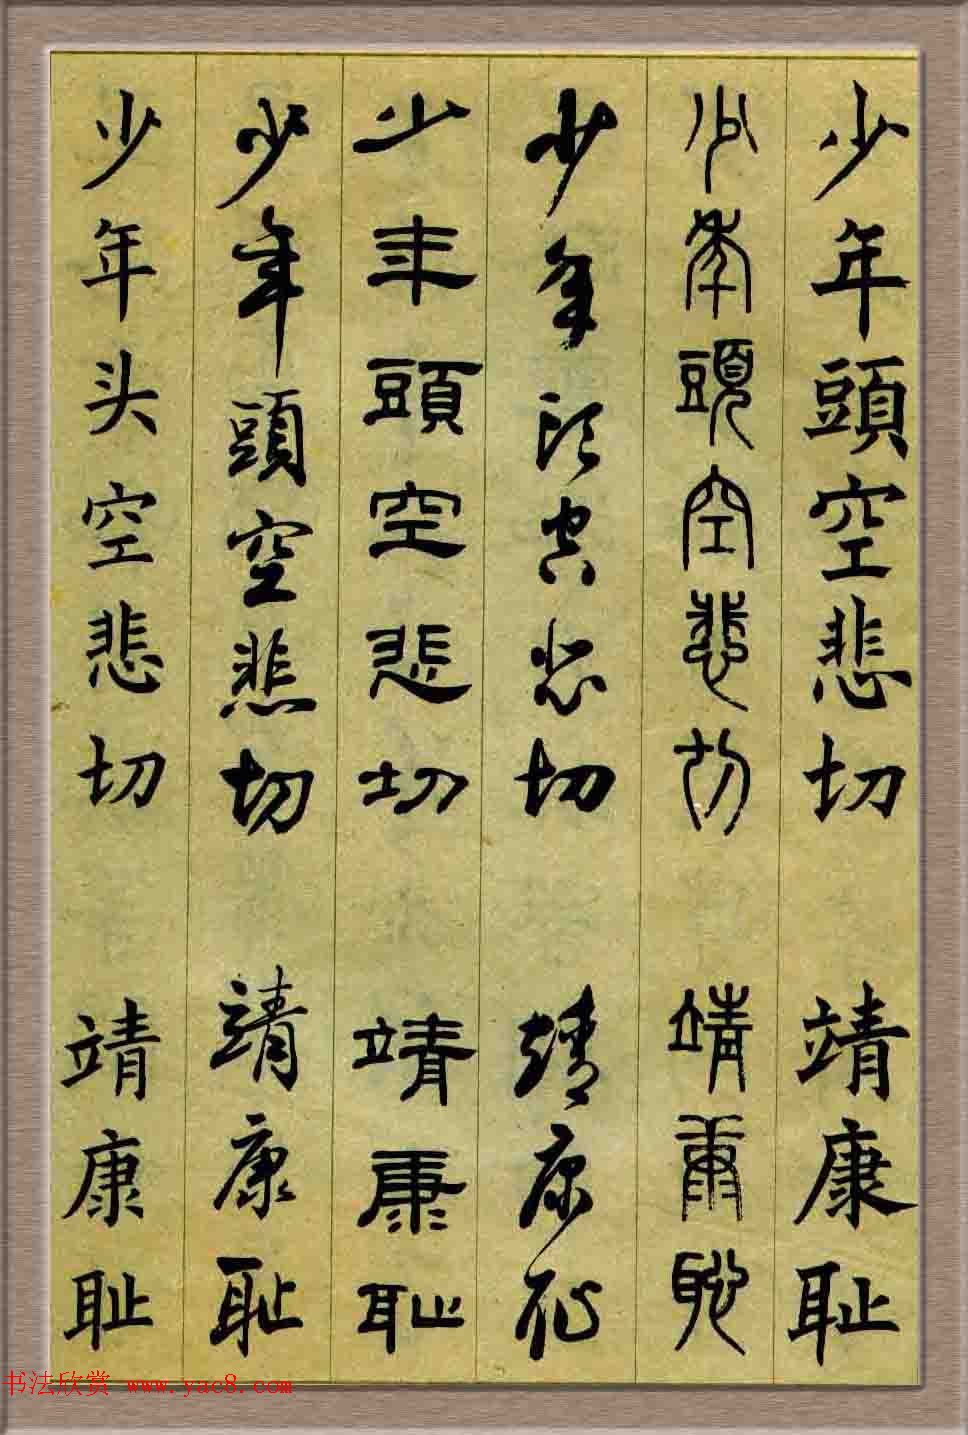 少年頭空悲切 靖康耻
少年頭空悲切 靖康恥
少年頭空悲切 靖康恥
少年頭空悲切 靖康耻
少年頭空悲切 靖康耻
少年头空悲切 靖康耻
书法欣赏 www.yac8.com